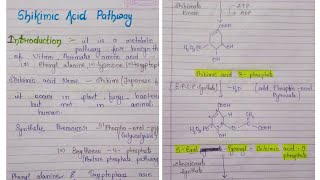 Shikimic Acid Pathway
Introduction :- it is a metabolic
pathway for biosynth
of Vitam, Aromatic Amino acid
(i) Phenyl alanine, (ii) tyrosine (iii) tryptop
Shikimic Acid Name - Shikim (Japanese f
it occurs in plant, fungi, bacteria
but not in animal
human.
Synthetic Precursors
Phospho-enol-py
(Glycolysis)
(ii) Erythrose-4-phosphate
Pentose phosphate pathway
Phenyl alanine & Tryptophan are
Shikimate
kinase
ATP
ADP
COOH
H₂O₃PO
OH
OH
Shikimic acid 3-phosphate
[add. Phospho-enol
Pyruvate]
COOH
H₂O₃PO
COOH
Shikimic acid-3
phosphate